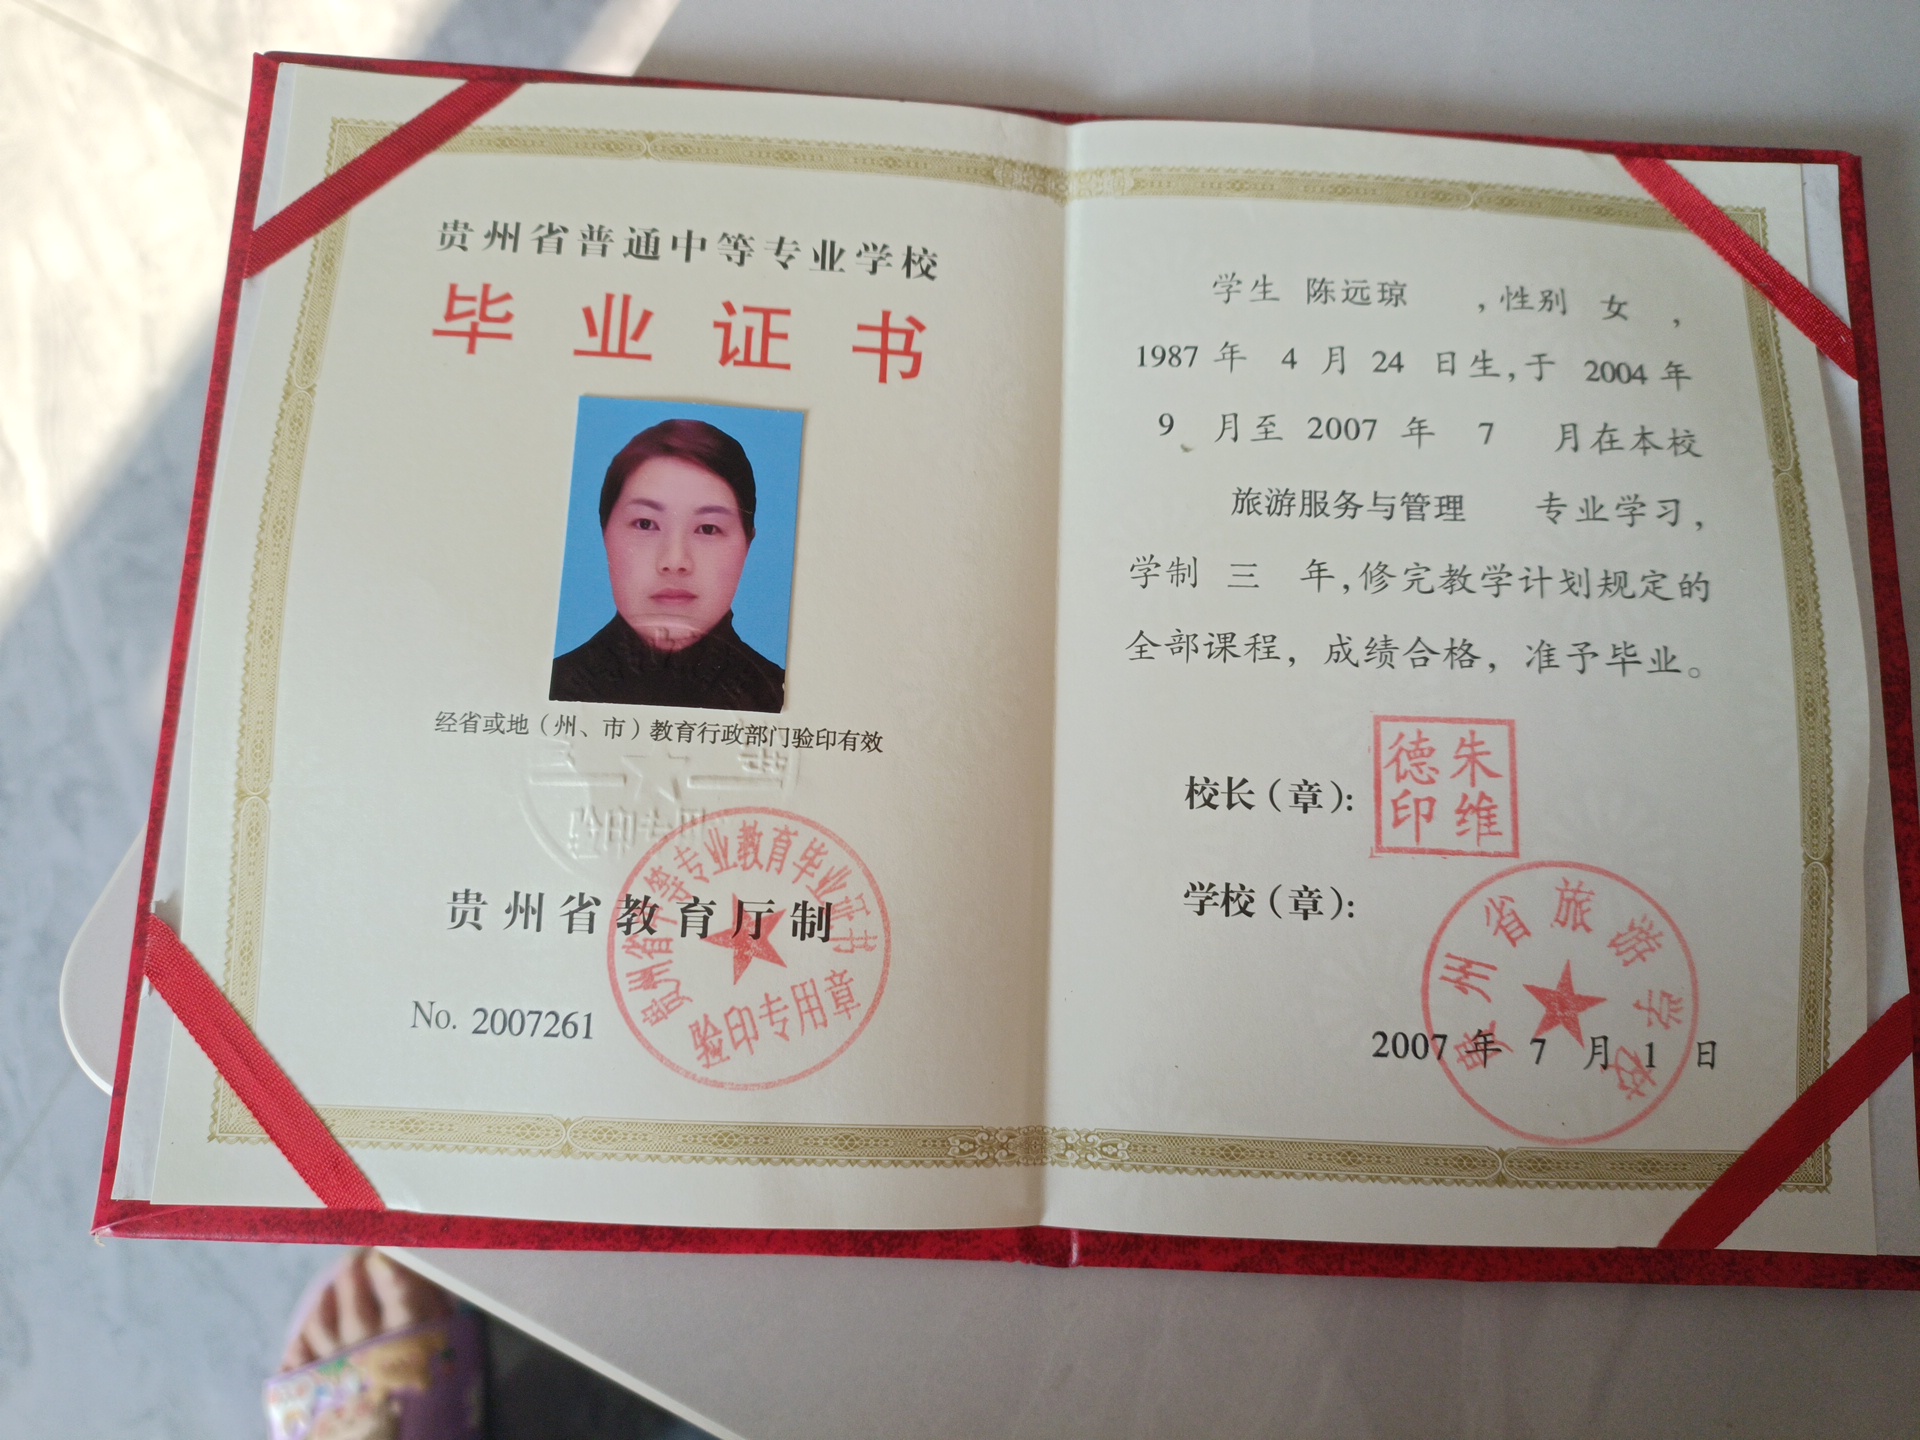 贵州省普通中等专业学校
毕业证书
经省或地（州、市）教育行政部门验印有效
验印专用
贵州省教育厅制
贵州省中等专业教育毕业证书
验印专用章
No. 2007261
学生 陈远琼 ，性别 女 ，
1987 年 4 月 24 日生，于 2004 年
9 月至 2007 年 7 月在本校
旅游服务与管理 专业学习，
学制 三 年，修完教学计划规定的
全部课程，成绩合格，准予毕业。
校长（章）：
朱维德印
学校（章）：
贵州省旅游学校
2007 年 7 月 1 日